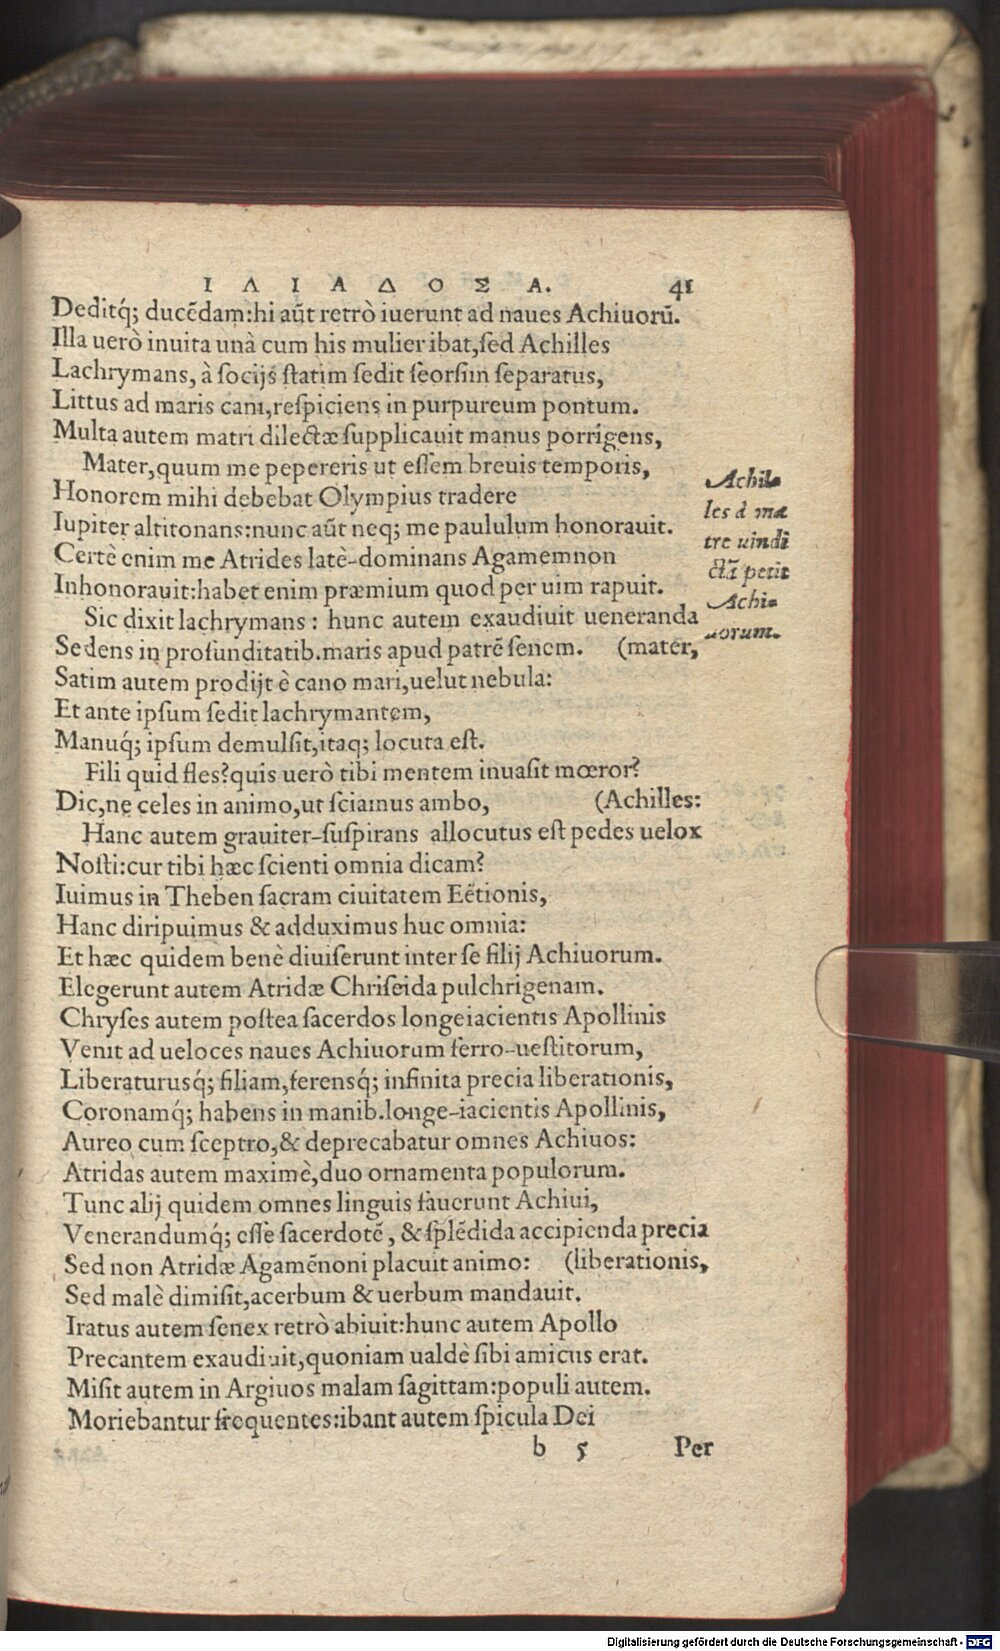 Ι Λ Ι Α Δ Ο Σ Α. 41
Deditq́; ducēdam:hi aūt retrò iuerunt ad naues Achiuorū.
Illa uerò inuita unà cum his mulier ibat,sed Achilles
Lachrymans, à socijs statim sedit seorsim separatus,
Littus ad maris cani,respiciens in purpureum pontum.
Multa autem matri dilectæ supplicauit manus porrigens,
Mater,quum me pepereris ut essem breuis temporis,
Honorem mihi debebat Olympius tradere
Iupiter altitonans:nunc aūt neq; me paululum honorauit.
Certè enim me Atrides latè-dominans Agamemnon
Inhonorauit:habet enim præmium quod per uim rapuit.
Sic dixit lachrymans : hunc autem exaudiuit ueneranda
Sedens in profunditatib.maris apud patrē senem. (mater,
Satim autem prodijt è cano mari,uelut nebula:
Et ante ipsum sedit lachrymantem,
Manuq́; ipsum demulsit,itaq; locuta est.
Fili quid fles?quis uerò tibi mentem inuasit mœror?
Dic,ne celes in animo,ut sciamus ambo, (Achilles:
Hanc autem grauiter-suspirans allocutus est pedes uelox
Nosti:cur tibi hæc scienti omnia dicam?
Iuimus in Theben sacram ciuitatem Eëtionis,
Hanc diripuimus & adduximus huc omnia:
Et hæc quidem benè diuiserunt inter se filij Achiuorum.
Elegerunt autem Atridæ Chriseida pulchrigenam.
Chryses autem postea sacerdos longeiacientis Apollinis
Venit ad ueloces naues Achiuorum ferro-uestitorum,
Liberaturusq́; filiam,ferensq́; infinita precia liberationis,
Coronamq́; habens in manib.longe-iacientis Apollinis,
Aureo cum sceptro,& deprecabatur omnes Achiuos:
Atridas autem maximè,duo ornamenta populorum.
Tunc alij quidem omnes linguis fauerunt Achiui,
Venerandumq́; esse sacerdotē, & splēdida accipienda precia
Sed non Atridæ Agamēnoni placuit animo: (liberationis,
Sed malè dimisit,acerbum & uerbum mandauit.
Iratus autem senex retrò abiuit:hunc autem Apollo
Precantem exaudiuit,quoniam ualdè sibi amicus erat.
Misit autem in Argiuos malam sagittam:populi autem.
Moriebantur frequentes:ibant autem spicula Dei
b 5 Per
Achil-
les à ma
tre uindi
ctā petit
Achi-
uorum.
Digitalisierung gefördert durch die Deutsche Forschungsgemeinschaft - DFG